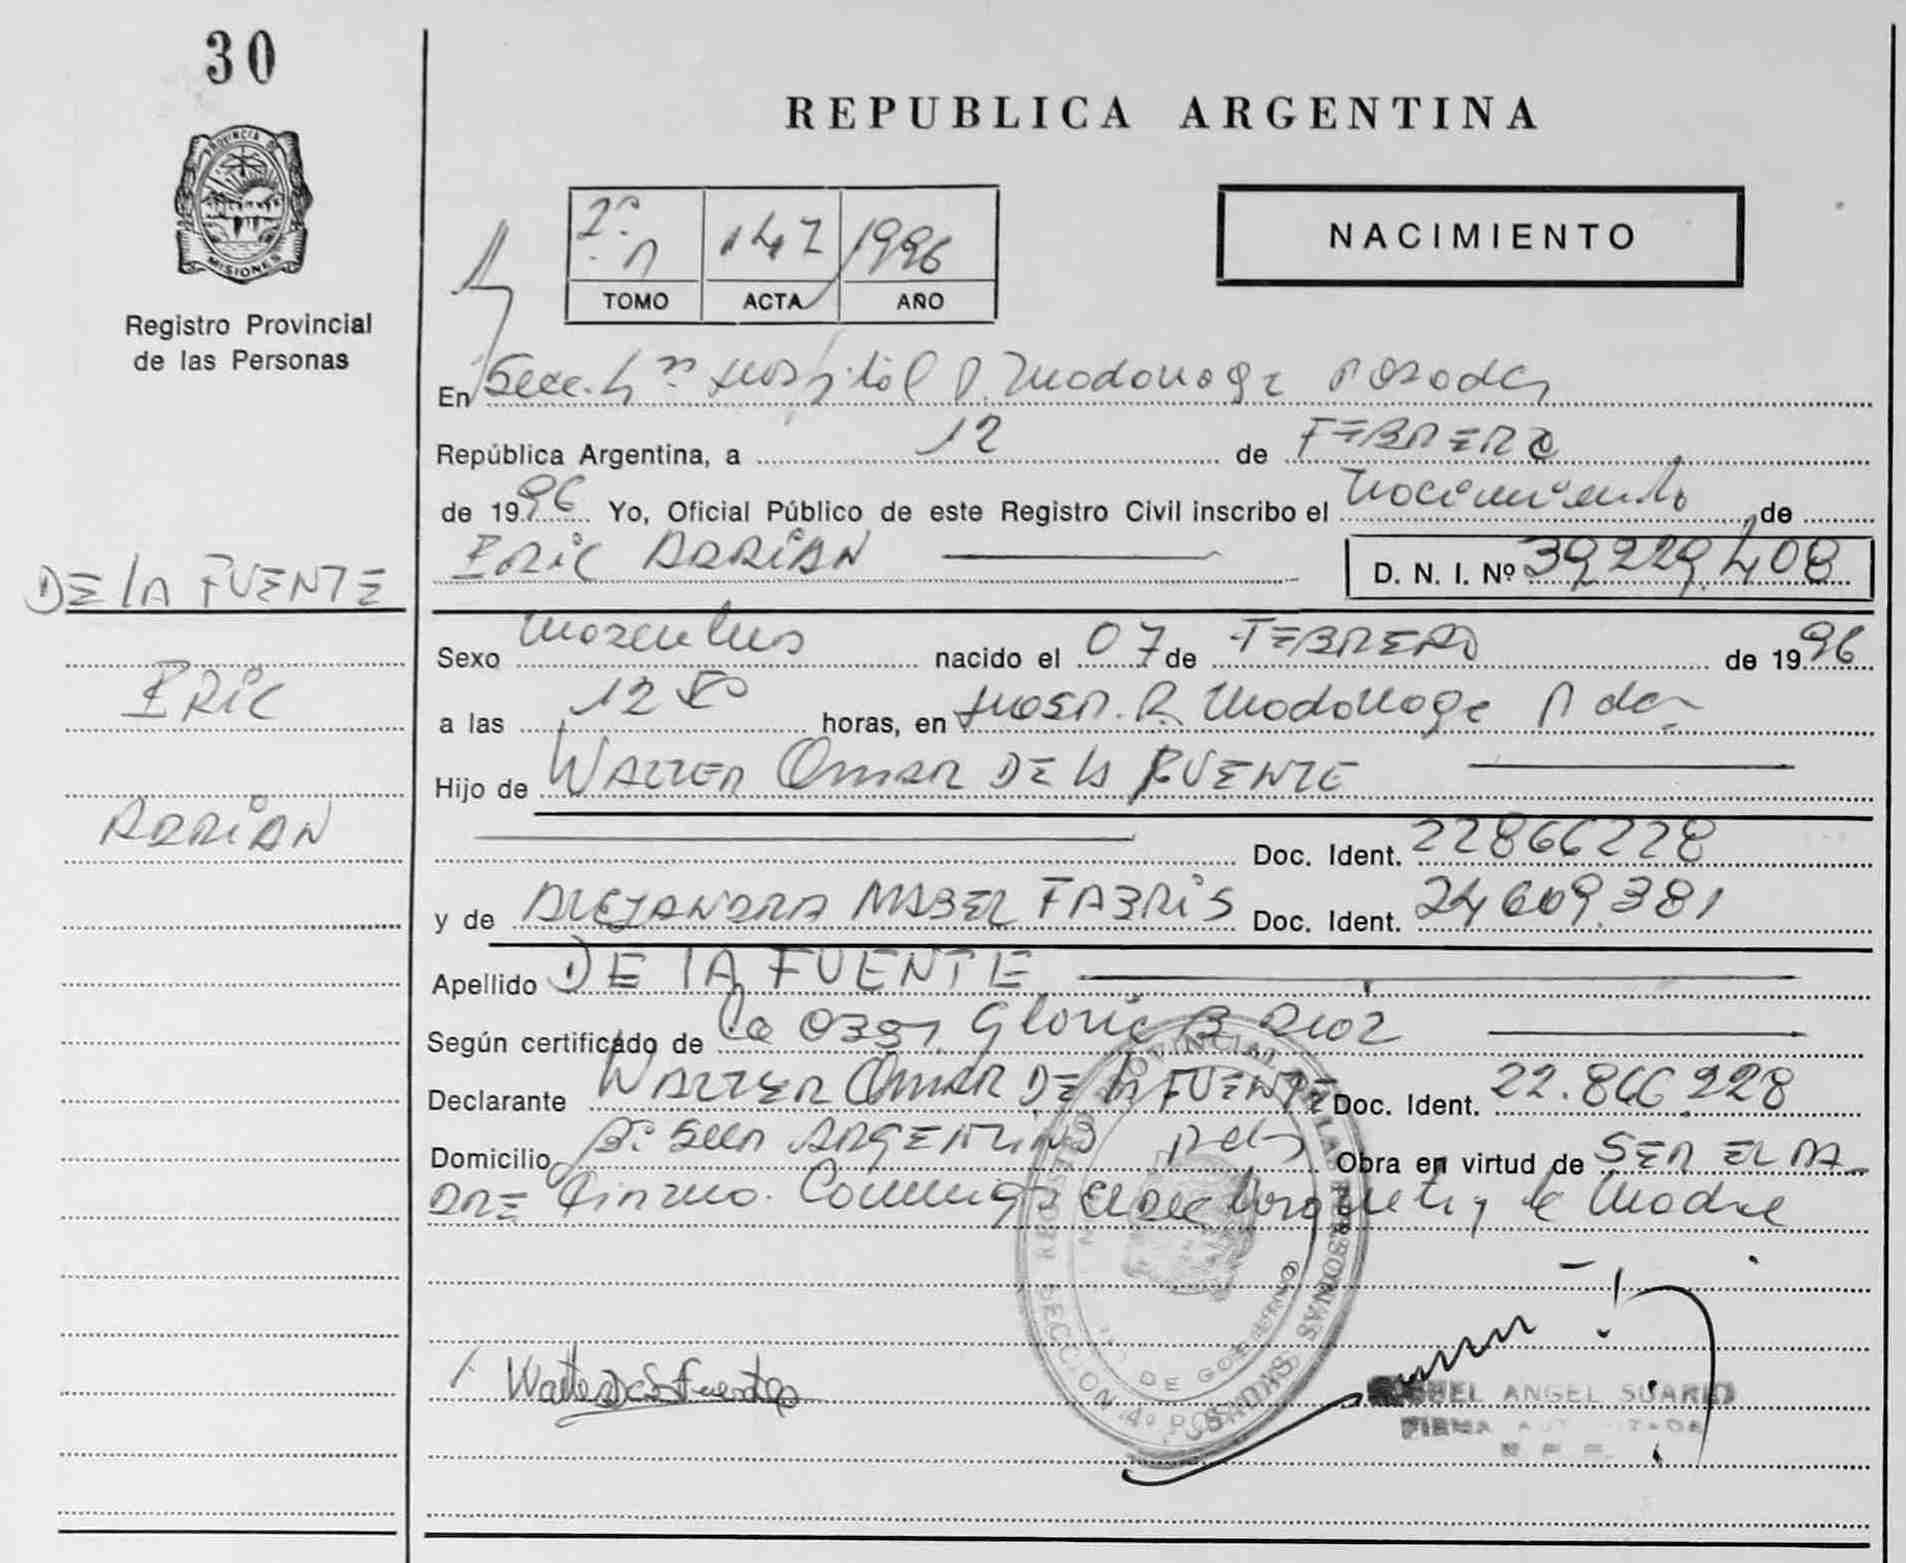 30
PROVINCIA D
MISIONES
Registro Provincial
de las Personas
REPUBLICA ARGENTINA
NACIMIENTO
2º 147 1996
TOMO ACTA AÑO
En Secc. 4ta Hospital R. Madariaga Posadas
República Argentina, a 12 de FEBRERO
de 1996 Yo, Oficial Público de este Registro Civil inscribo el Nacimiento de
ERIC ADRIAN D. N. I. Nº 39.229.408
DE LA FUENTE
ERIC
ADRIAN
Sexo Masculino nacido el 07 de FEBRERO de 1996
a las 12 horas, en Hosp. R. Madariaga Pdas
Hijo de WALTER OMAR DE LA FUENTE
Doc. Ident. 22866228
y de ALEJANDRA MABEL FABRIS Doc. Ident. 24.609.381
Apellido DE LA FUENTE
Según certificado de la Obst. Gloria B
Declarante WALTER OMAR DE LA FUENTE Doc. Ident. 22.866.228
Domicilio Bº ARGENTINO Pdas Obra en virtud de SER EL PA
DRE Firma Conmigo el declarante y la Madre
REGISTRO PROVINCIAL DE LAS PERSONAS
SECCION 4º POSADAS
DE GOBIERNO
Walter De la Fuente
ANGEL SUAREZ
FIRMA